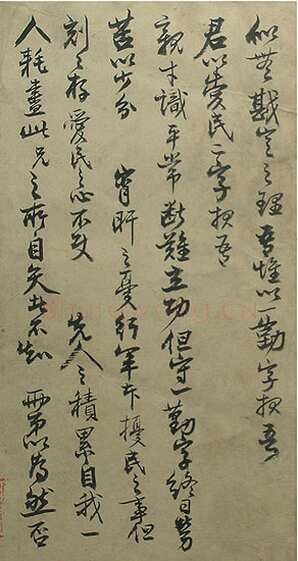 似無戡定之理吾惟以一勤字报吾
君以愛民二字报吾
親才識平常斷難立功但守一勤字終日勞
苦以少分 宵旰之憂行軍本擾民之事但
刻々存愛民之心不使 先人之積累自我一
人耗盡此兄之所自矢者不知 兩弟以為然否